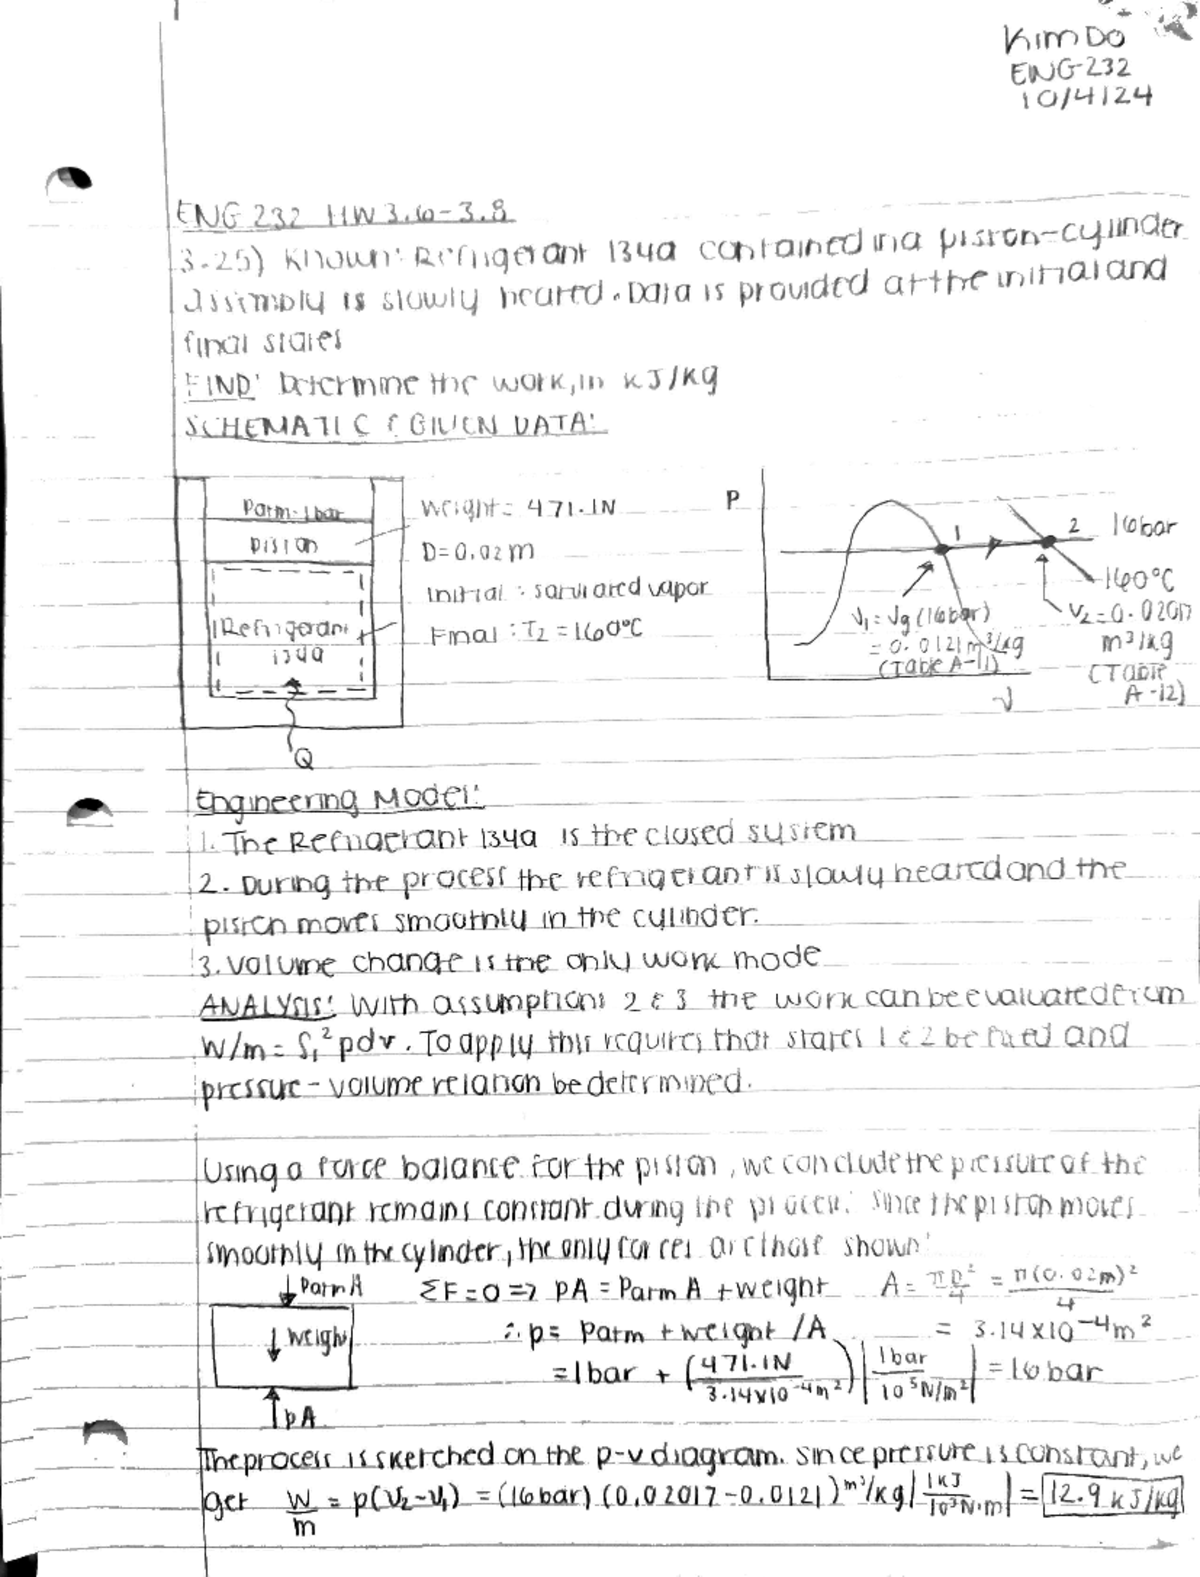 Kim Do
ENG-232
10/4/24
ENG 232 HW 3.6-3.8
3.25) Known: Refrigerant 134a contained in a piston-cylinder
assembly is slowly heated. Data is provided at the initial and
final states
FIND: Determine the work, in kJ/kg
SCHEMATIC & GIVEN DATA:
Patm=1bar
piston
Refrigerant
134a
Q
Weight = 471.1N
D=0.02m
initial: saturated vapor
Final: T2 = 160°C
P
1
2
16bar
160°C
v1 = vg (16bar)
= 0.0121 m³/kg
(Table A-11)
v2 = 0.02017
m³/kg
(Table
A-12)
v
Engineering Model:
1. The Refrigerant 134a is the closed system
2. During the process the refrigerant is slowly heated and the
piston moves smoothly in the cylinder.
3. Volume change is the only work mode
ANALYSIS: With assumptions 2 & 3 the work can be evaluated from
W/m = ∫₁² pdv. To apply this requires that states 1 & 2 be fixed and
pressure-volume relation be determined.
Using a force balance for the piston, we conclude the pressure of the
refrigerant remains constant during the process. Since the piston moves
smoothly in the cylinder, the only forces are those shown:
↓ Patm A
↓ Weight
↑ pA
ΣF=0 => pA = Patm A + weight
A = πD²/4 = π(0.02m)²/4
= 3.14x10⁻⁴m²
∴ p = Patm + weight /A
= 1bar + (471.1N / 3.14x10⁻⁴m²) |1bar / 10⁵N/m²| = 16bar
The process is sketched on the p-v diagram. Since pressure is constant, we
get W/m = p(v2-v1) = (16bar)(0.02017-0.0121) m³/kg |1kJ / 10³N·m| = 12.9 kJ/kg